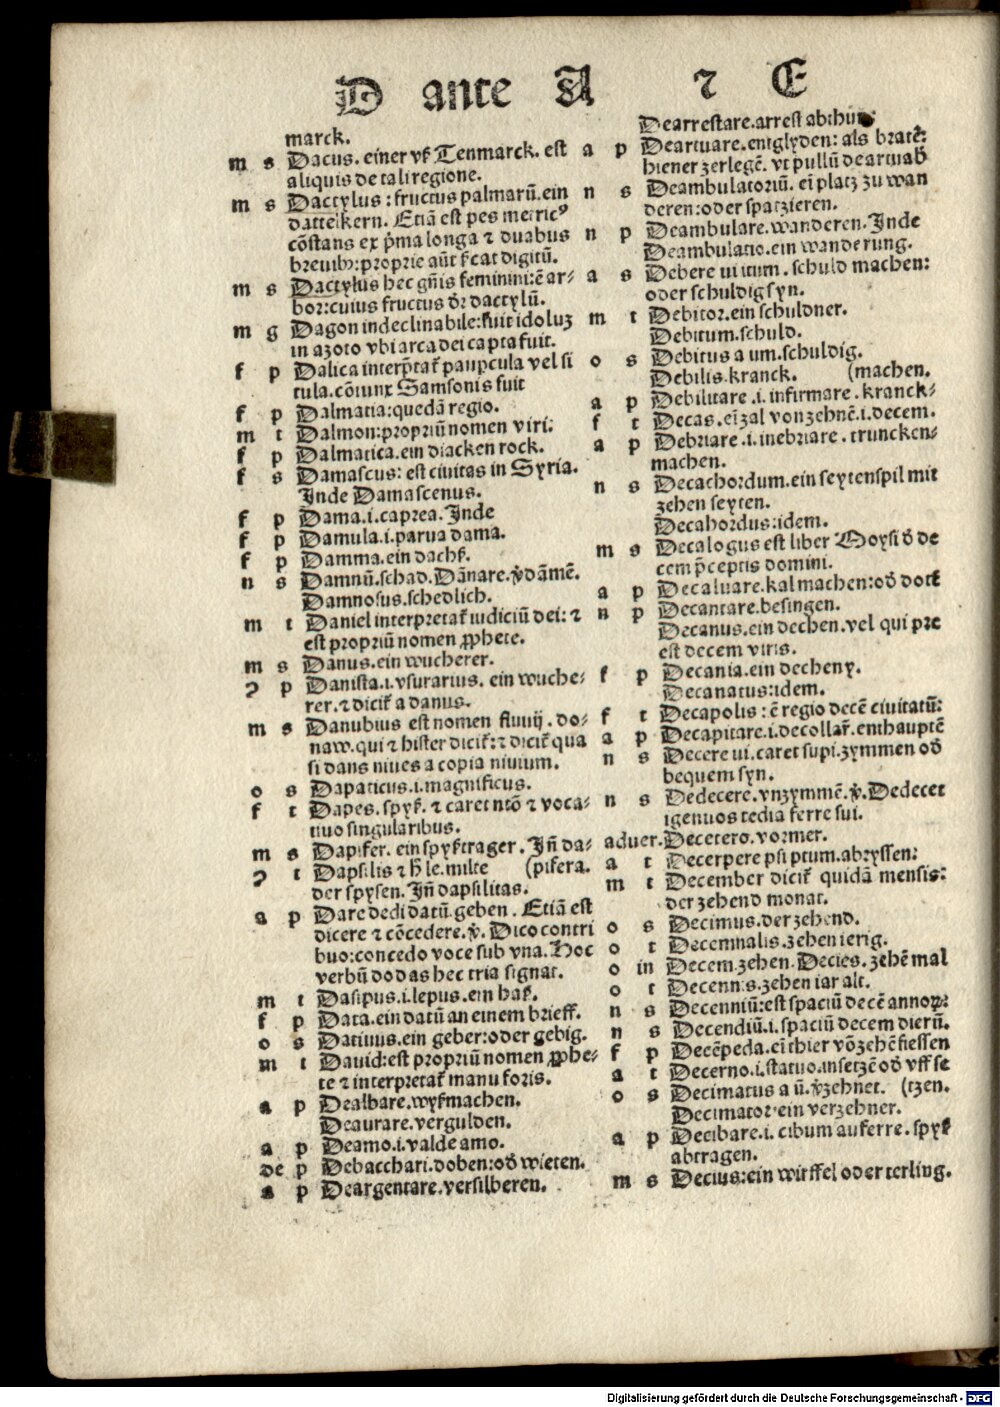 D ante A ⁊ E
marck.
m s Dacus. einer vß Tenmarck. est
aliquis de tali regione.
m s Dactylus: fructus palmarū. ein
dattelkern. Etiā est pes metricꝰ
cōstans ex p̄ma longa ⁊ duabus
breuibꝰ: proprie aūt
m s Dactylus hec gn̄is feminini: ē ar-
bor: cuius fructus dr̄ dactylū.
m g Dagon indeclinabile: fuit idoluʒ
in azoto vbi arca dei capta fuit.
f p Dalica paupcula vel si
tula. cōiunx Samsonis fuit
f p Dalmatia: quedā regio.
m t Dalmon: propriū nomen viri:
f p Dalmatica. ein diacken rock.
f s Damascus: est ciuitas in Syria.
Inde Damascenus.
f p Dama. i. caprea. Inde
f p Damula. i. parua dama.
f p Damma. ein dachß.
n s Damnū. schad. Dānare. v̄dāmē.
Damnosus. schedlich.
m t Daniel interpretat̄ iudiciū dei: ⁊
est propriū nomen ꝓphete.
m s Danus. ein wucherer.
ꝯ p Danista. i. vsurarius. ein wuche-
rer. ⁊ dicit̄ a danus.
m s Danubius est nomen fluuij. do-
naw. qui ⁊ hister dicit̄: ⁊ dicit̄ qua
si dans niues a copia niuium.
o s Dapaticus. i. magnificus.
f t Dapes. spyß. ⁊ caret ntō ⁊ voca-
tiuo singularibus.
m s Dapifer. ein spyßtrager. Jn̄ da-
ꝯ t Dapsilis ⁊ h̄ le. milte (pifera.
der spysen. Jn̄ dapsilitas.
a p Dare dedi datū. geben. Etiā est
dicere ⁊ cōcedere. v̄. Dico contri
buo: concedo voce sub vna. Hoc
verbū do das hec tria signat.
m t Dasipus. i. lepus. ein haß.
f p Data. ein datū an einem brieff.
o s Datiuus. ein geber: oder gebig.
m t Dauid: est propriū nomen ꝓphe-
te ⁊ interpretat̄ manu foris.
a p Dealbare. wyßmachen.
Deaurare. vergulden.
a p Deamo. i. valde amo.
de p Debacchari. doben: od̄ wieten.
a p Deargentare. versilberen.
Dearrestare. arrest abthun
a p Deartuare. entglyden: als bratē:
hiener zerlegē. vt pullū deartuab
n s Deambulatoriū. eī platz zu wan
deren: oder spatzieren.
n p Deambulare. wanderen. Inde
Deambulatio. ein wanderung.
a s Debere ui itum. schuld machen:
oder schuldig syn.
m t Debitor. ein schuldner.
Debitum. schuld.
o s Debitus a um. schuldig.
Debilis. kranck. (machen.
a p Debilitare. i. infirmare. kranck-
f t Decas. eī zal von zehnē. i. decem.
a p Debriare. i. inebriare. truncken-
machen.
n s Decachordum. ein seytenspil mit
zehen seyten.
Decahordus: idem.
m s Decalogus est liber Moysi d̄ de
cem p̄ceptis domini.
a p Decaluare. kal machen: od̄
n p Decantare. besingen.
Decanus. ein dechen. vel qui pre
est decem viris.
f p Decania. ein decheny.
Decanatus: idem.
f t Decapolis: ē regio decē ciuitatū:
a p Decapitare. i. decollar̄. enthauptē
n s Decere ui. caret supi. zymmen od̄
bequem syn.
n s Dedecere. vnzymmē. v̄. Dedecet
igenuos tedia ferre sui.
aduer. Decetero. vormer.
a t Decerpere psi ptum. abryssen:
m t December dicit̄ quidā mensis:
der zehend monat.
o s Decimus. der zehend.
o t Decennalis. zehen ierig.
o in Decem. zehen. Decies. zehē mal
o t Decennis. zehen iar alt.
n s Decenniū: est spaciū decē annoꝝ:
n s Decendiū. i. spaciū decem dierū.
f p Decēpeda. eī thier vō zehē fiessen
a t Decerno. i. statuo. insetzē od̄ vff se
o s Decimatus a ū. v̄zehnet. (tzen.
Decimator. ein verzehner.
a p Decibare. i. cibum auferre. spyß
abtragen.
m s Decius: ein wirffel oder terling.
Digitalisierung gefördert durch die Deutsche Forschungsgemeinschaft - DFG